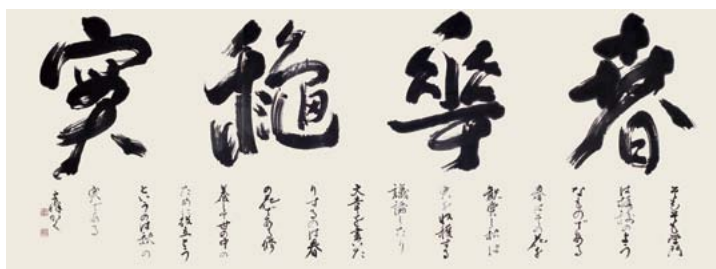 春華穐實
そもそも学問
は のよう
なものである
春はその花を
観賞し秋は
実を収穫する
議論したり
文章を書いた
りするのは春
の花であり修
養して世の中の
ために役立とう
というのは秋の
実である